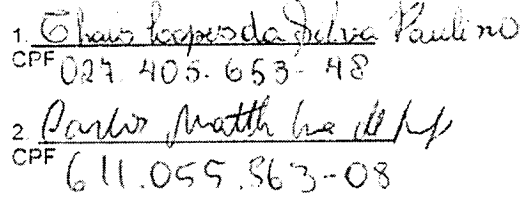 1. Thais Lopes da Silva Paulino
CPF 027.405.653-48
2. Carlos Matth
CPF 611.055.363-08